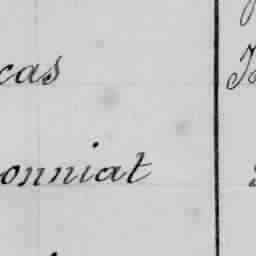 cas
onniat